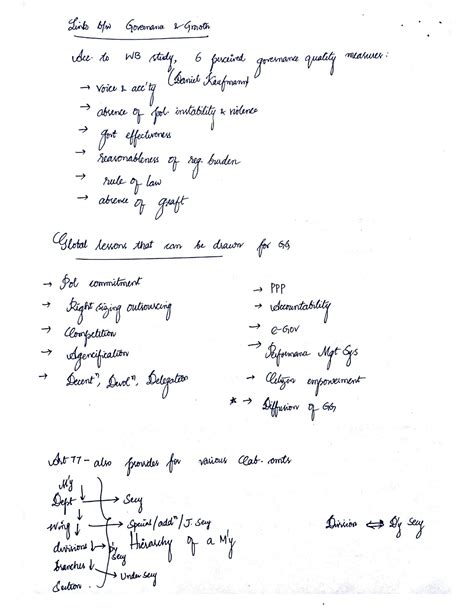 Links b/w Governance & Growth
Acc to WB study, 6 perceived governance quality measures:
(Daniel Kaufmann)
→ voice & acc'ty
→ absence of pol instability & violence
→ govt effectiveness
→ reasonableness of reg. burden
→ rule of law
→ absence of graft
Global lessons that can be drawn for GG
→ Pol commitment
→ Right sizing outsourcing
→ Competition
→ Agencification
→ Decentⁿ, Devolⁿ, Delegation
→ PPP
→ Accountability
→ e-Gov
→ Performance Mgt Sys
→ Citizen empowerment
* → Diffusion of GG
Art 77 - also provides for various Cab. cmts
M'y
Dept → Secy
wing → Special/addⁿ/J. Secy
divisions → Dy Secy
branches → Under Secy
Section
Hierarchy of a M'y
Division ⇔ Dy Secy